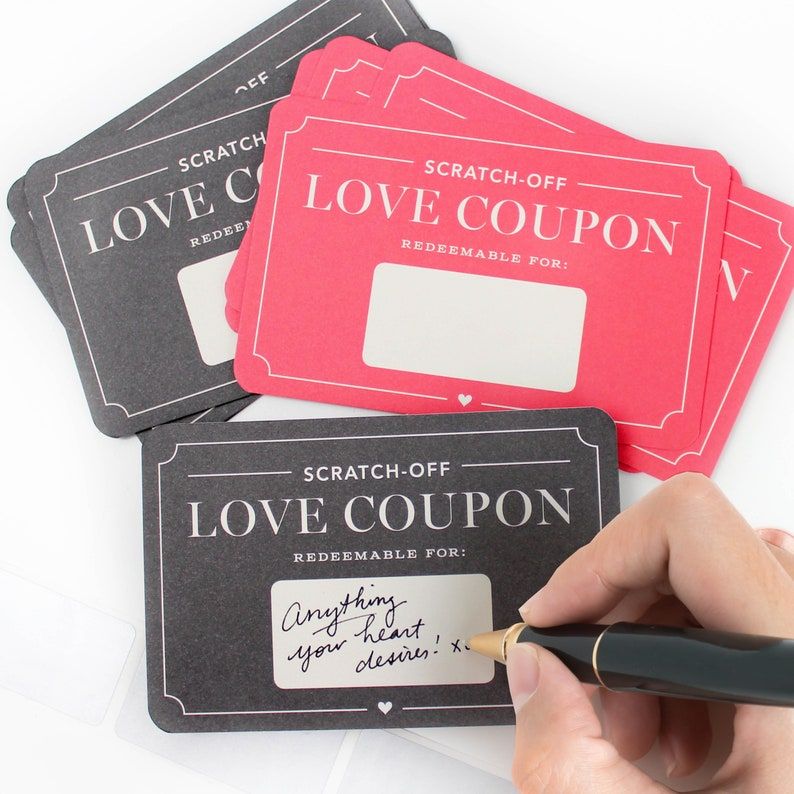 -OFF
SCRATCH-
LOVE COU
REDEEM
SCRATCH-OFF
LOVE COUPON
REDEEMABLE FOR:
N
SCRATCH-OFF
LOVE COUPON
REDEEMABLE FOR:
Anything
your heart
desires! x